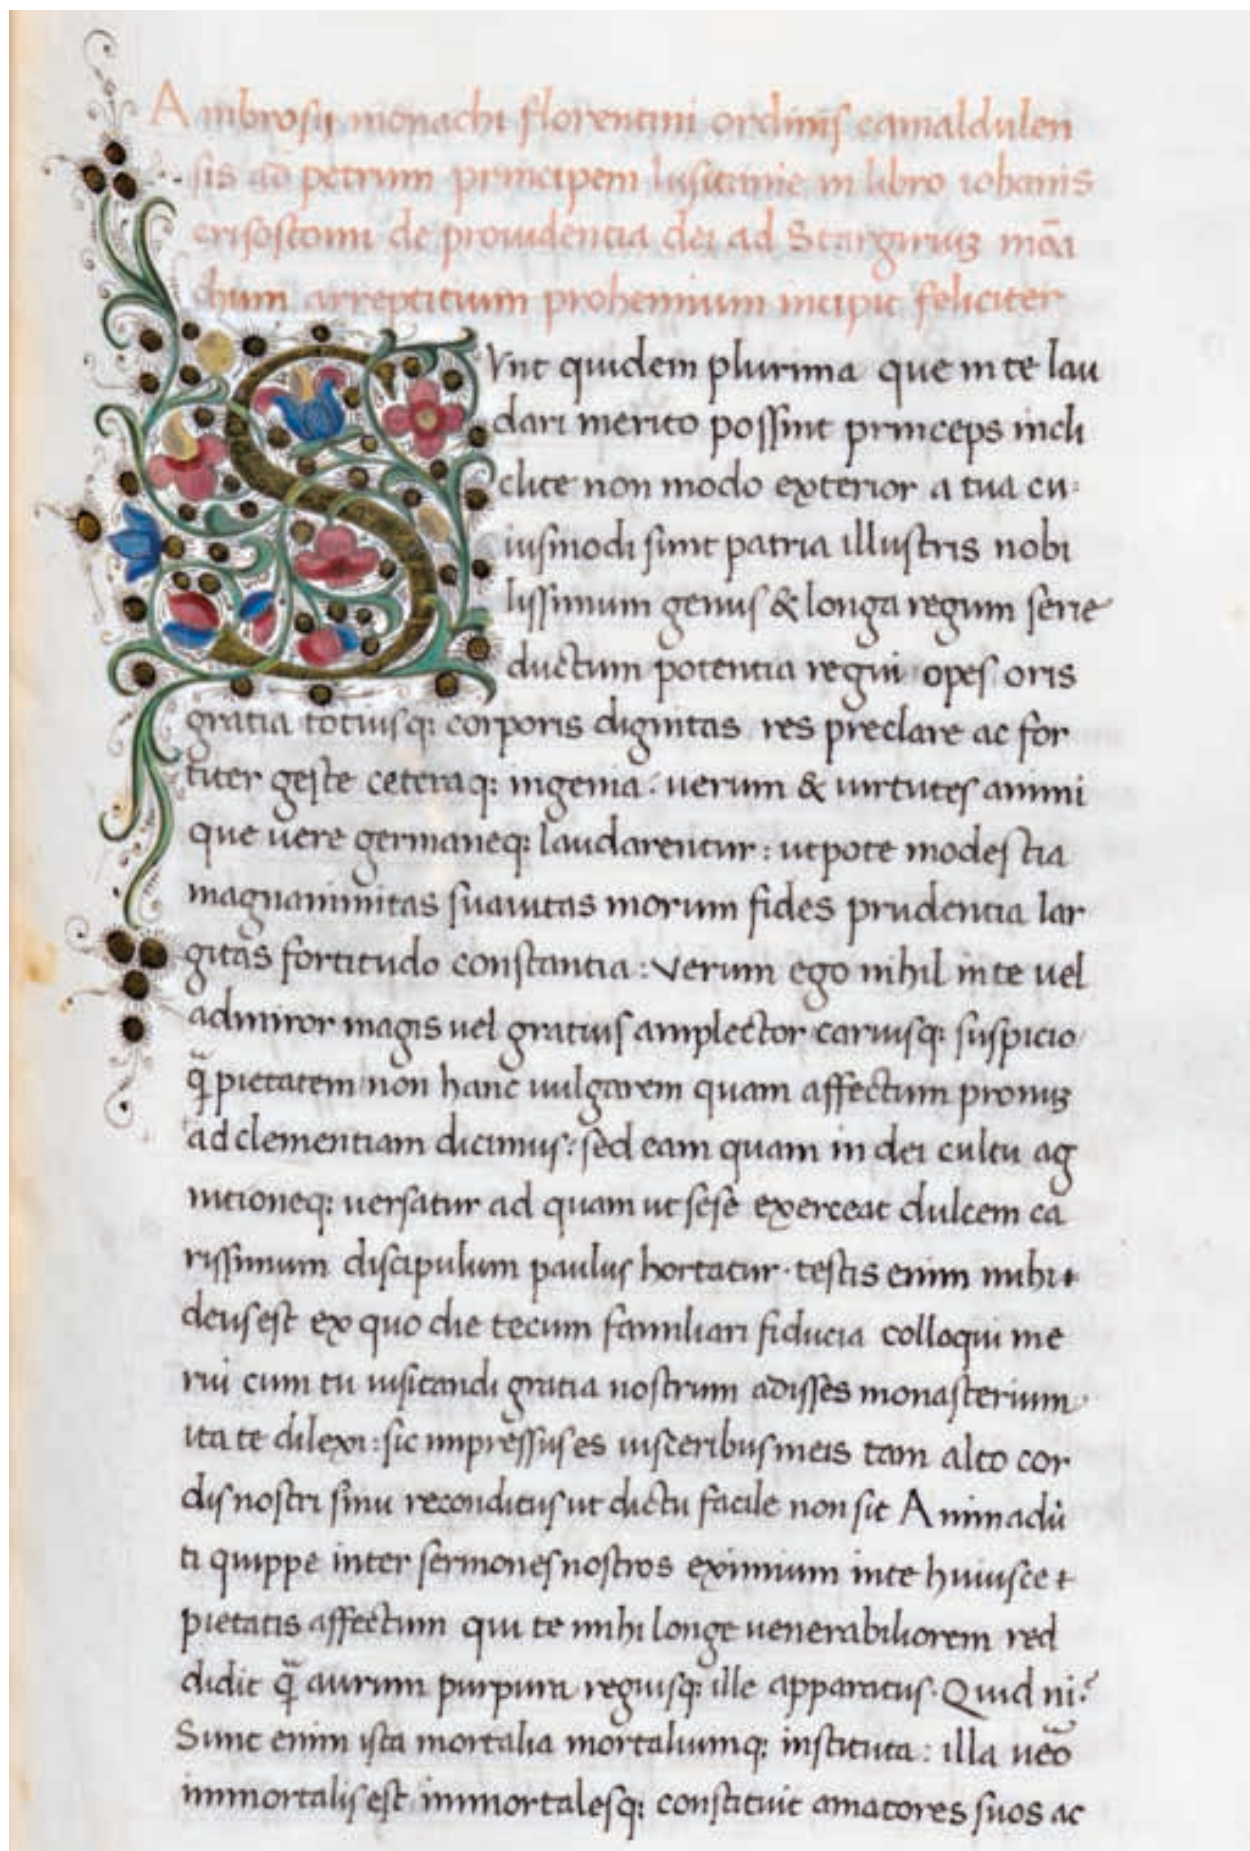 Ambrosij monachi florentini ordinis camaldulen
sis ad petrum principem lusitanie in libro iohanis
crisostomi de prouidentia dei ad Stargiriuꝫ mōa
chum arreptitium prohemium incipit feliciter
SVnt quidem plurima que in te lau
dari merito possint princeps incli
clite non modo exterior a tua cu:
iusmodi sunt patria illustris nobi
lissimum genus & longa regum serie
ductum potentia regni opes oris
gratia totiusq; corporis dignitas res preclare ac for
titer geste ceteraq; ingenia: uerum & uirtutes animi
que uere germaneq; laudarentur: utpote modestia
magnanimitas suauitas morum fides prudentia lar
gitas fortitudo constantia: Verum ego nihil in te uel
admiror magis uel gratius amplector cariusq; suspicio
q̄ pietatem non hanc uulgarem quam affectum pronuꝫ
ad clementiam dicimus: sed eam quam in dei cultu ag
nitioneq; uersatur ad quam ut sese exerceat dulcem ca
rissimum discipulum paulus hortatur. testis enim mihi
deus est ex quo die tecum familiari fiducia colloqui me
rui cum tu uisitandi gratia nostrum adisses monasterium
ita te dilexi: sic impressus es uisceribus meis tam alto cor
dis nostri sinu reconditus ut dictu facile non sit Animadū
ti quippe inter sermones nostros eximium in te huiusce
pietatis affectum qui te mihi longe uenerabiliorem red
didit q̄ aurum purpura regiusq; ille apparatus. Quid ni?
Sunt enim ista mortalia mortaliumq; instituta: illa uēo
immortalis est immortalesq; constituit amatores suos ac